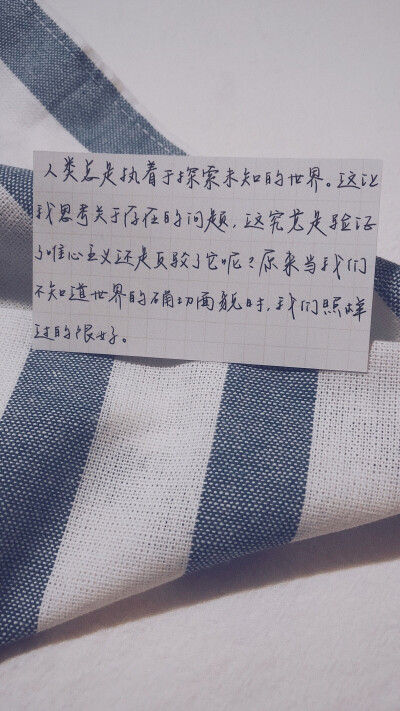 人类总是执着于探索未知的世界。这让
我思考关于存在的问题，这究竟是验证
了唯心主义还是反驳了它呢？原来当我们
不知道世界的确切面貌时，我们照样
过的很好。